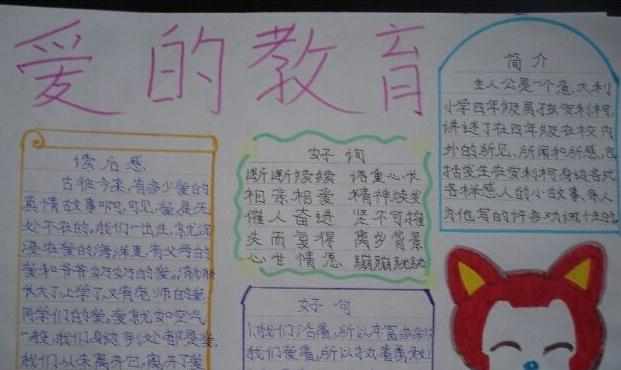 爱的教育
简介
主人公是一个意大利
小学四年级男孩安利柯,
讲述了在四年级在校内
外的所见,所闻和所感,包
括发生在安利柯身边各式
各样感人的小故事,亲人
为他写的许多劝诫
读后感
古往今来,有多少爱的
真情故事啊,可见,爱是无
处不在的,我们一出生,就沉
浸在爱的海洋里,有父母的
爱和爷爷奶奶的爱,
长大了,上学了,又有老师的爱
同学们的爱,爱就如空气
一般,我们身边到处都是爱
我们从未离开它,离开了爱
好词
断断续续 语重心长
相亲相爱 精神焕发
催人奋进 坚不可摧
失而复得 离乡背景
心甘情愿 蹦蹦跳跳
好句
1.我们活着,所以丰富
我们爱着,所以